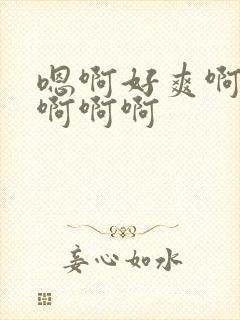 嗯啊好爽啊
啊啊啊
妄心如水